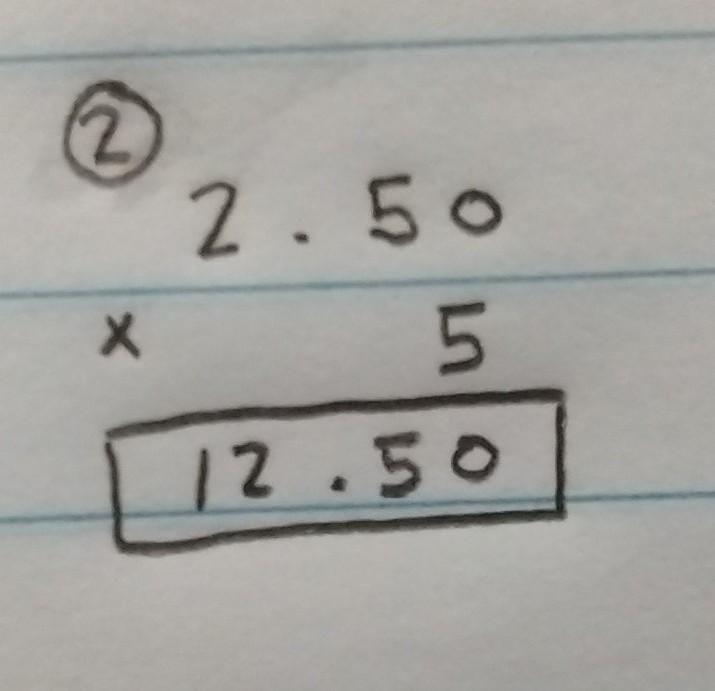 ②
2.50
x 5
12.50